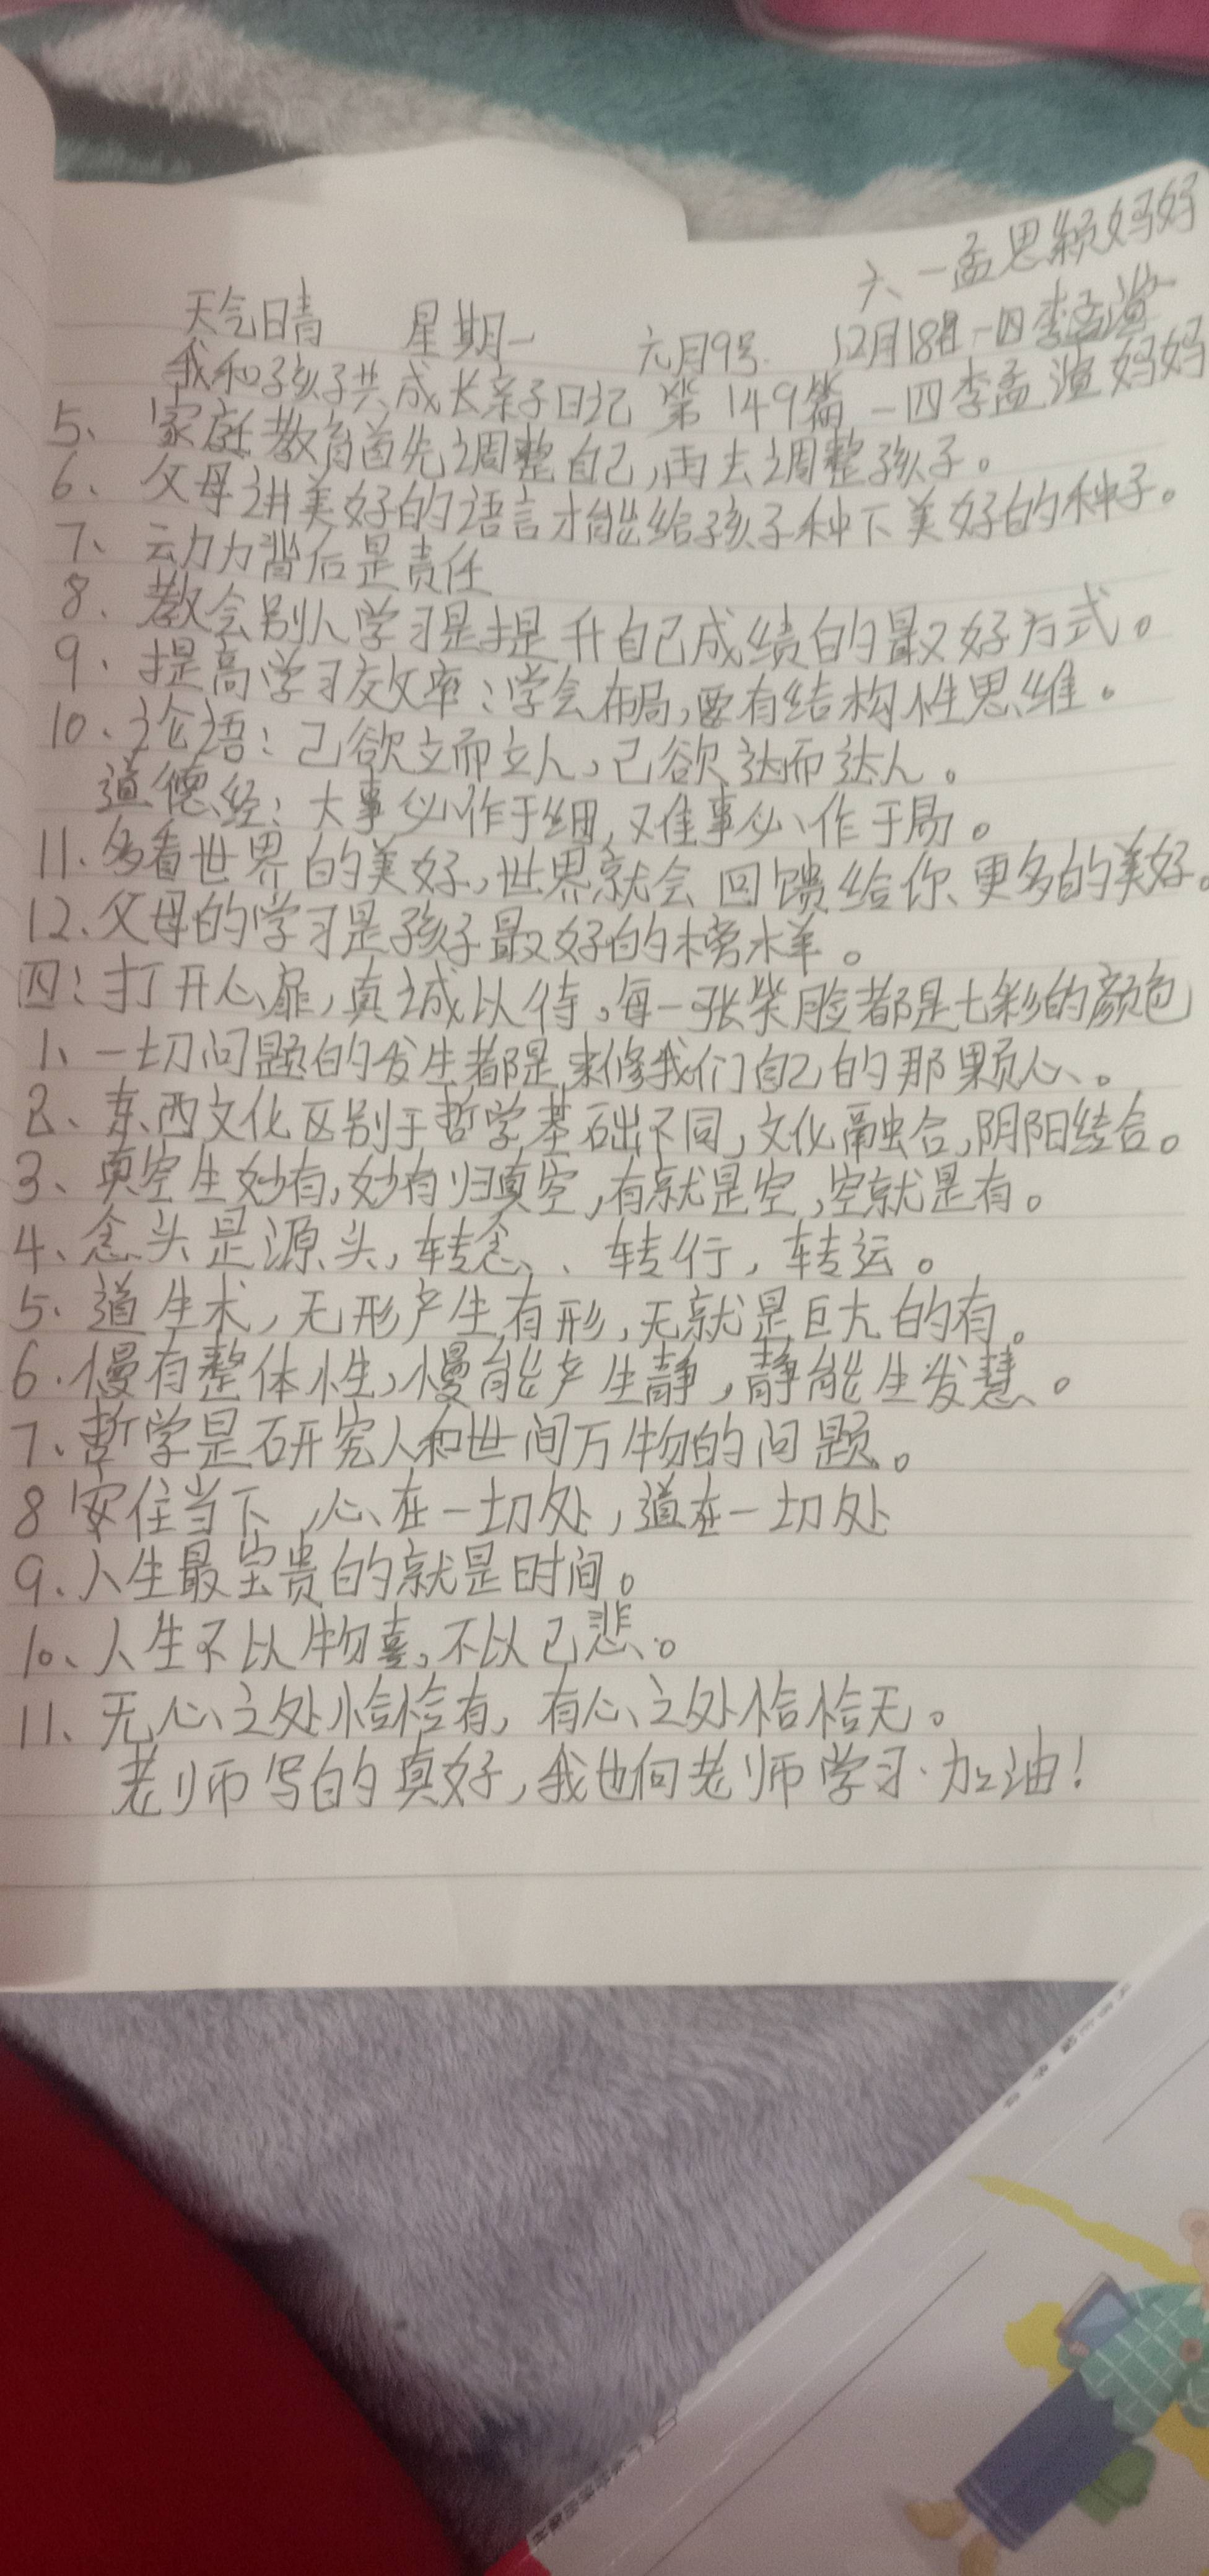 六一孟思颖妈妈
天气晴 星期一 元月9号. 12月18日一四李孟滢
我和孩子共成长亲子日记 第149篇 一四李孟滢妈妈
5、家庭教育首先调整自己,再去调整孩子。
6、父母讲美好的语言才能给孩子种下美好的种子。
7、动力背后是责任
8、教会别人学习是提升自己成绩的最好方式。
9、提高学习效率:学会布局,要有结构性思维。
10、论语:己欲立而立人,己欲达而达人。
道德经:大事必作于细,难事必作于易。
11、多看世界的美好,世界就会回馈给你更多的美好。
12、父母的学习是孩子最好的榜样。
四:打开心扉,真诚以待,每一张笑脸都是七彩的颜色
1、一切问题的发生都是来修我们自己的那颗心。
2、东西文化区别于哲学基础不同,文化融合,阴阳结合。
3、真空生妙有,妙有归真空,有就是空,空就是有。
4、念头是源头,转念、转行,转运。
5、道生术,无形产生有形,无就是巨大的有。
6.慢有整体性,慢能产生静,静能生发慧。
7、哲学是研究人和世间万物的问题。
8 安住当下,心在一切处,道在一切处
9、人生最宝贵的就是时间。
10、人生不以物喜,不以己悲。
11、无心之处恰恰有,有心之处恰恰无。
老师写的真好,我也向老师学习.加油!